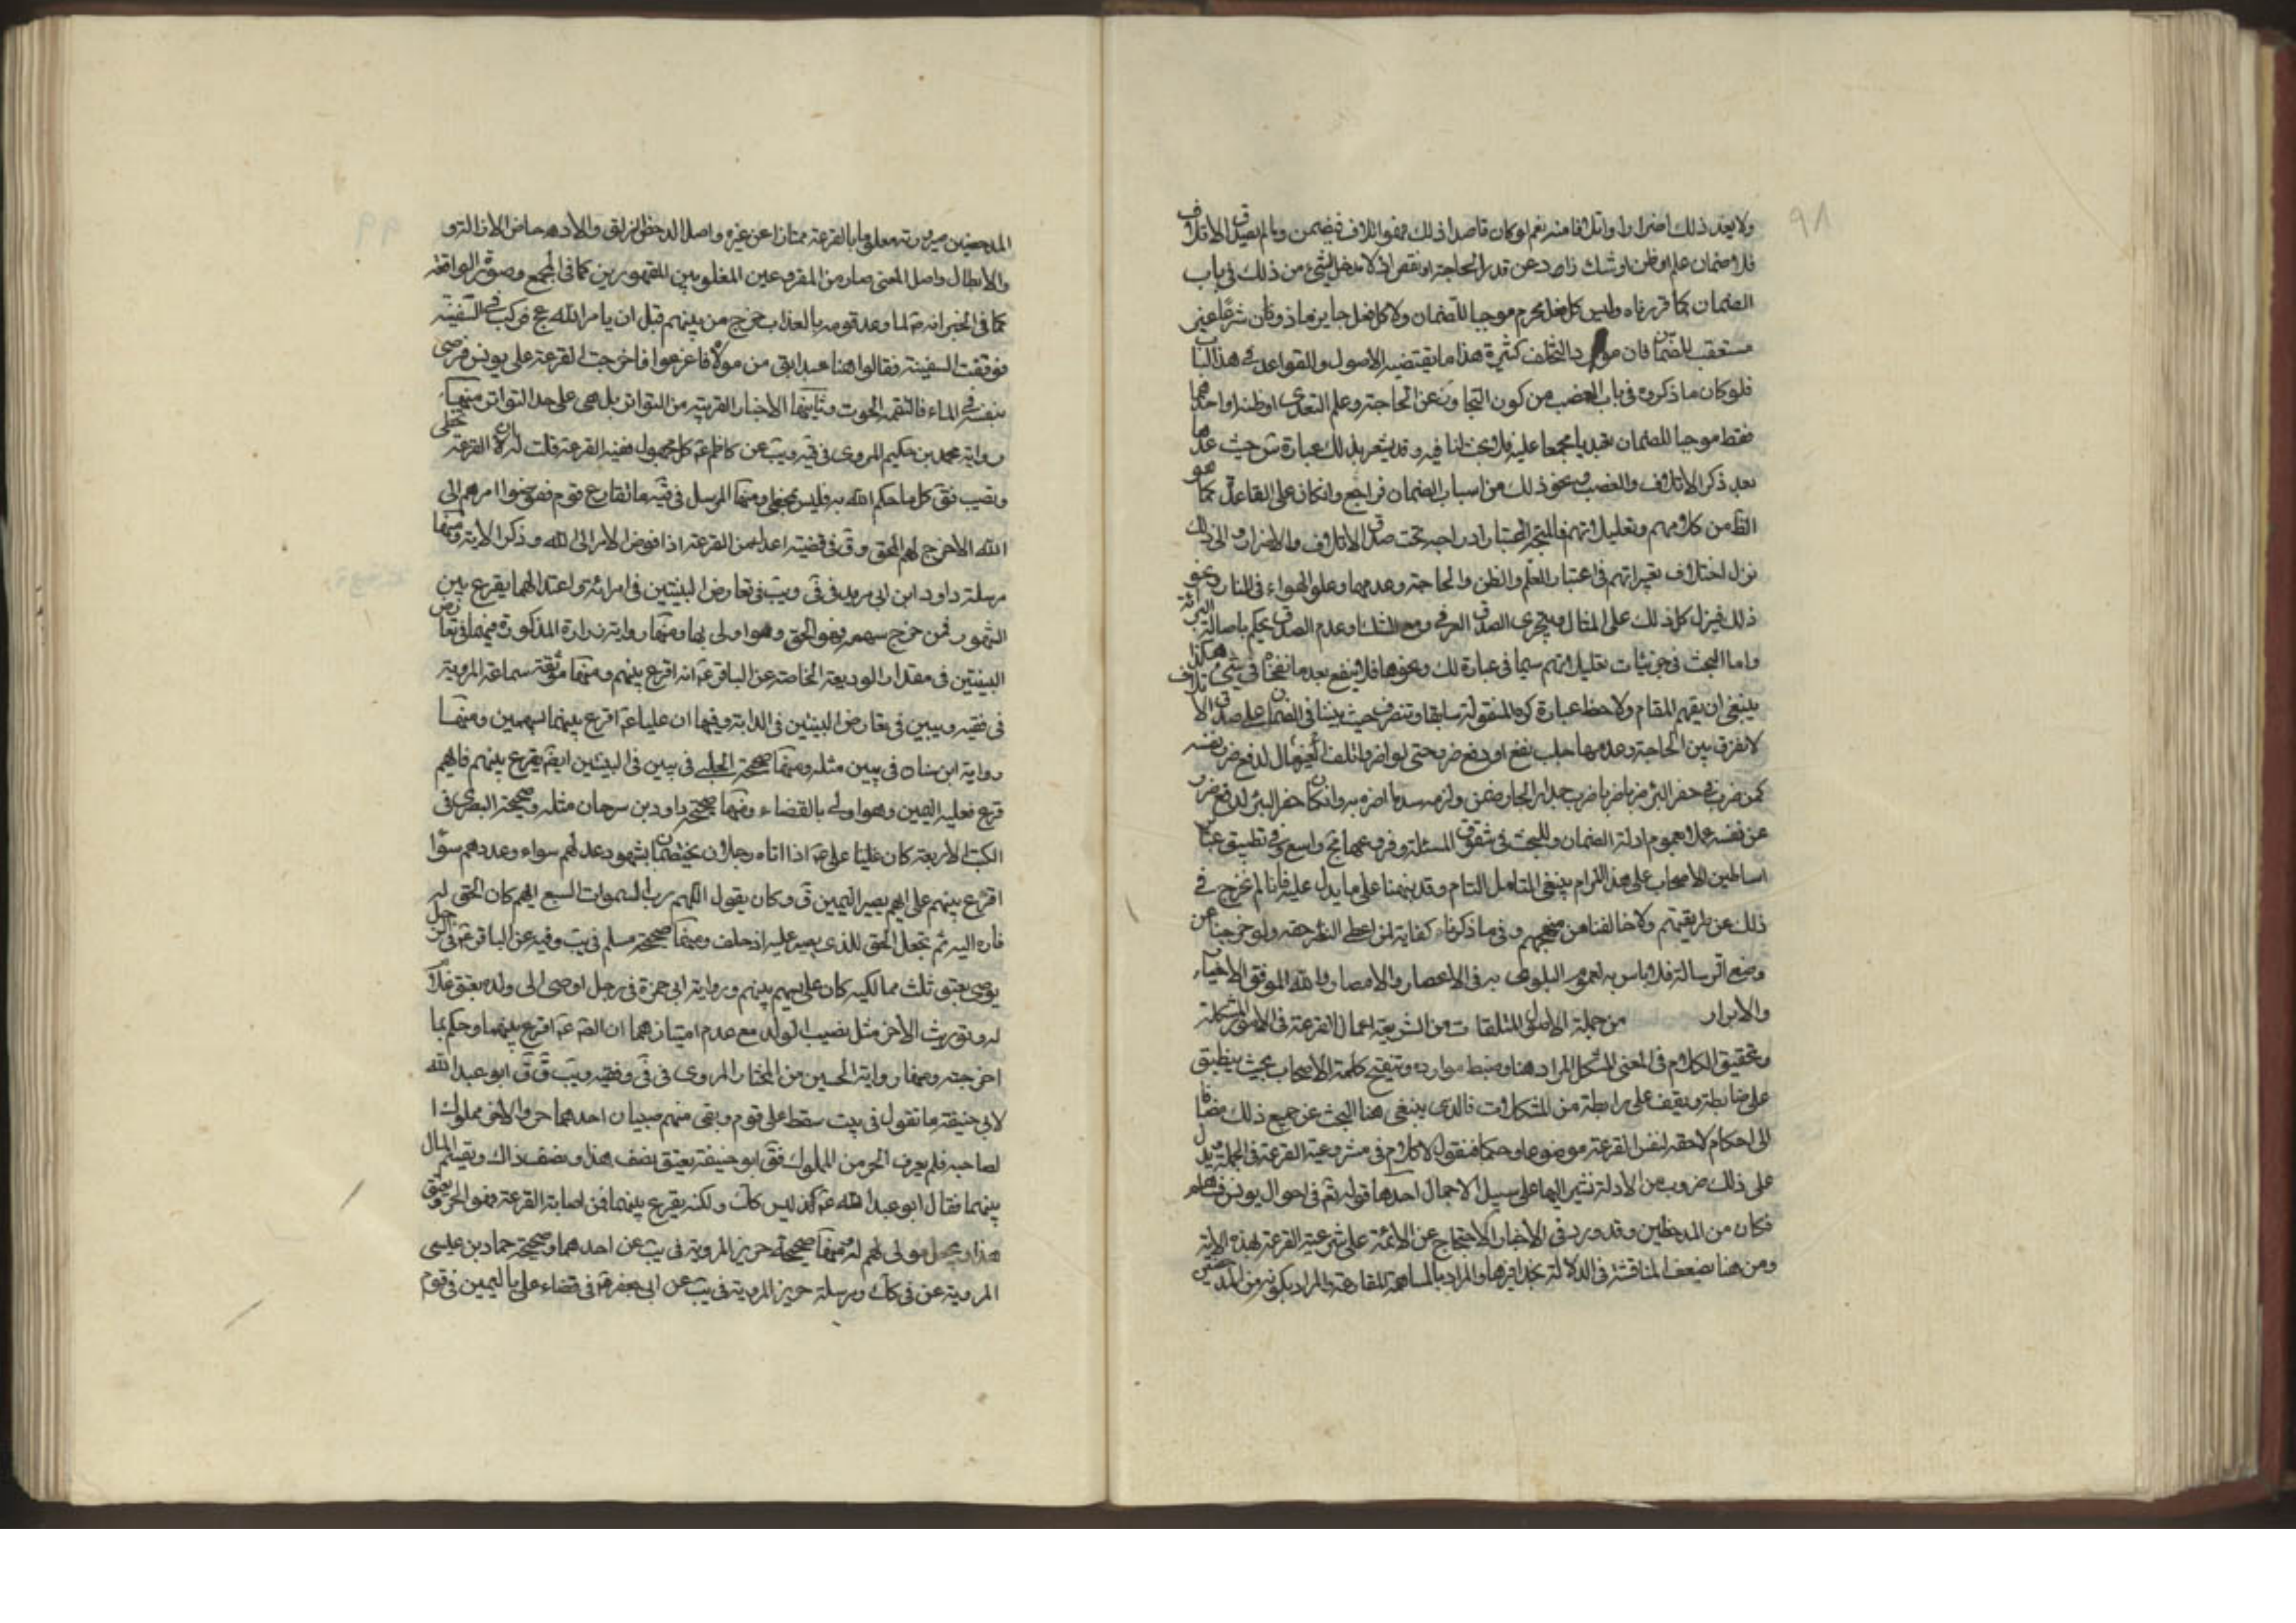 ٩٨
ولا يعد ذلك اضرارا واتلافا منه نعم لو كان قاصدا لذلك فهو اتلاف فيضمن وما لم يصدق الاتلاف
فلا ضمان علم او ظن او شك زاد عن قدر الحاجة او نقص اذ لا مدخل لشئ من ذلك في باب
الضمان كما قررناه وليس كل فعل محرم موجبا للضمان ولا كل فعل جايز ماذون فان شرعا غير
مستعقب للضمان فان موارد التخلف كثيرة هذا ما يقتضيه الاصول والقواعد في هذا الباب
فلو كان ما ذكروه في باب الغصب من كون التجاوز عن الحاجة وعلم التعدي او ظنه او احدهما
فقط موجبا للضمان تعبديا مجمعا عليه فلا بحث لنا فيه وقد يشعر بذلك عبارة ش حيث عدها
بعد ذكر الاتلاف والغصب ونحو ذلك من اسباب الضمان فراجع وان كان على القاعدة كما هو
الظ من كلامهم وتعليلاتهم فالمتجه اعتبار ادراجه تحت صدق الاتلاف والاضرار والى ذلك
نزل اختلاف تعبيراتهم في اعتبار العلم والظن والحاجة وعدمهما وعلو الهواء في النار ونحو
ذلك فينزل كل ذلك على المثال ويتحرى الصدق العرفي ومع الشك وعدم الصدق يحكم باصالة البرائة
واما البحث في جزئيات تعليلاتهم سيما في عبارة لك ونحوها فلا ينفع بعد ما نقحناه في شئ هكذا
ينبغي ان يفهم المقام ولاحظ عبارة كره المنقولة سابقا وتصرف حيث بينا في الضمان على صدق الاتلاف
لا نفرق بين الحاجة وعدمها جلب نفع او دفع ضر حتى لو اضر واتلف لغيره مال لدفع ضر نفسه
كمن ضرب في حفر البئر ضربا خرب جدار الجار ضمن ولزمه سد ما اضر به وان كان حفر البئر لدفع ضرر
عن نفسه عملا بعموم ادلة الضمان وللبحث في شقوق المسئلة وفروعها مج واسع وفي تطبيق عبا
اساطين الاصحاب على هذا المرام ينبغي التامل التام وقد نبهنا على ما يدل عليه فانا لم نخرج في
ذلك عن طريقتهم ولا خالفنا من منهجهم وفي ما ذكرناه كفاية لمن اعطى النظر حقه ولو خرجنا عن
وضع الرسالة فلا باس به لعموم البلوى به في الاعصار والامصار والله الموفق الاخيار
والابرار من جملة الاصول المتلقات من الشريعة اعمال القرعة في الامور المشكلة
وتحقيق الكلام في المعنى المشكل المراد هنا وضبط موارده وتنقيح كلمة الاصحاب بحيث ينطبق
على ضابطة ونقيف على رابطة من المشكلات فالذي ينبغي هنا البحث عن جميع ذلك مضافا
الى احكام لاحقه لنفس القرعة موضوعا وحكما فنقول لا كلام في مشروعية القرعة في الجملة ويدل
على ذلك ضروب من الادلة نشير اليها على سبيل الاجمال احدها قوله تع في احوال يونس فساهم
فكان من المدحضين وقد ورد في الاخبار الاحتجاج عن الائمة على شرعية القرعة بهذه الاية
ومن هنا نضعف المناقشة في الدلالة بحذافيرها والمراد بالمساهمة المقارعة والمراد بكونه من المدحضين
٩٩
المدحضين صيرورته معلوما بالقرعة ممتازا عن غيره واصل الدحض الزلق والادحاض الازالة و
والابطال واصل المعنى صار من المقروعين المغلوبين المقهورين كما في المجمع وصورة الواقعة
كما في الخبر انه ع لما وعد قومه بالعذاب خرج من بينهم قبل ان يامر الله عج فركب في السفينة
فوقفت السفينة فقالوا هنا عبد ابق من مولاه فاقرعوا فاخرجت القرعة على يونس فرمى
بنفسه في الماء فالتقمه الحوت وثانيها الاخبار القريبة من التواتر بل هي على حد التواتر منها
رواية محمد بن حكيم المروى في قيه ويب عن كاظم ع كل مجهول ففيه القرعة قلت له ان القرعة تخطى
وتصيب فق كل ما حكم الله به فليس بمخطى ومنها المرسل في قيه ما تقارع قوم ففوضوا امرهم الى
الله الا خرج لهم المحق وق في قضية اعدل من القرعة اذا فوض الامر الى الله وذكر الاية ومنها
مرسلة داود ابن ابي يزيد في في ويب في تعارض البينتين في امرائة واعتدالهما يقرع بين
الشهود فمن خرج سهمه فهو المحق وهو اولى بها ومنها رواية زرارة المذكورة فيهما في تعارض
البينتين في مقدار الوديعة الخاصة عن الباقر ع انه اقرع بينهم ومنها موثقة سماعة المروية
في فقيه ويبين في تعارض البينتين في الدابة وفيها ان عليا ع اقرع بينهما بسهمين ومنها
رواية ابن سنان في يبين مثله ومنها صحيحة الحلبي في يبين في البينتين ايضا يقرع بينهم فايهم
قرع فعليه اليمين وهو اولى بالقضاء ومنها صحيحة داود بن سرحان مثله وصحيحة البصري في
الكتب الاربعة كان علينا علي ع اذا اتاه رجلان يختصمان بشهود عدلهم سواء وعددهم سوا
اقرع بينهم على ايهم يصير اليمين ق وكان يقول اللهم رب السموات السبع ايهم كان الحق له
فاده اليه ثم تجعل الحق للذي يصير عليه اذ حلف ومنها صحيحة مسلم في يب وفيه عن الباقر ع في الرجل
يوصى بعتق ثلث مماليكه كان علي يسهم بينهم ورواية ابي حمزة في رجل اوصى الى ولده بعتق غلا
له وتوريث الاخر مثل نصيب الولد مع عدم امتيازهما ان القه ع اقرع بينهما وحكم بما
اخرجته ومنها رواية الحسين بن المختار المروى في في وفقيه ويب ق ق ابو عبد الله
لابي حنيفة ما تقول في بيت سقط على قوم وبقى منهم صبيان احدهما حر والاخر مملوك ا
لصاحبه فلم يعرف الحر من المملوك فق ابو حنيفة يعتق نصف هذا ونصف ذاك ويقسم المال
بينهما فقال ابو عبد الله ع ليس كك ولكنه يقرع بينهما فمن اصابته القرعة فهو الحر ويعتق
هذا ويجعل مولى لهم له ومنها صحيحة حريز المروية في يب عن احدهما وصحيحة حماد بن عيسى
المروية عن في كك ومرسلة حريز المروية في يب عن ابي جعفر ع في قضاء علي باليمين في قوم